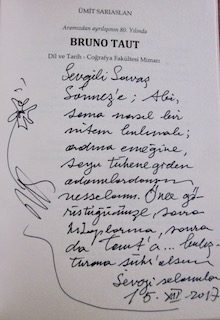 ÜMİT SARIASLAN
Aramızdan ayrılışının 80. Yılında
BRUNO TAUT
Dil ve Tarih - Coğrafya Fakültesi Mimarı
Sevgili Savaş
Sönmez'e; Abi,
sana nasıl bir
sitem bulmalı;
adına emeğine,
adamlardansın
vesselam. Önce gö-
rüştüğümüze, sonra
kitaplarına, sonra
da Taut'a... buluş-
turana şükr'olsun
Sevgi selamla
15. XII. 2017